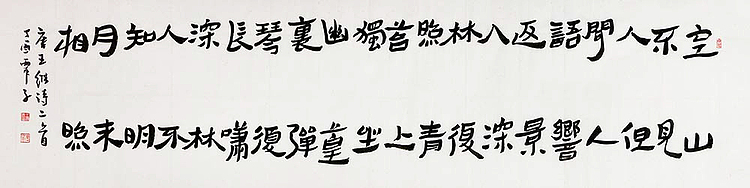 空山
不見
人但
聞人
語響
返景
入深
林復
照青
苔上
獨坐
幽篁
裏彈
琴復
長嘯
深林
人不
知明
月来
相照
唐王維詩二首
丁酉